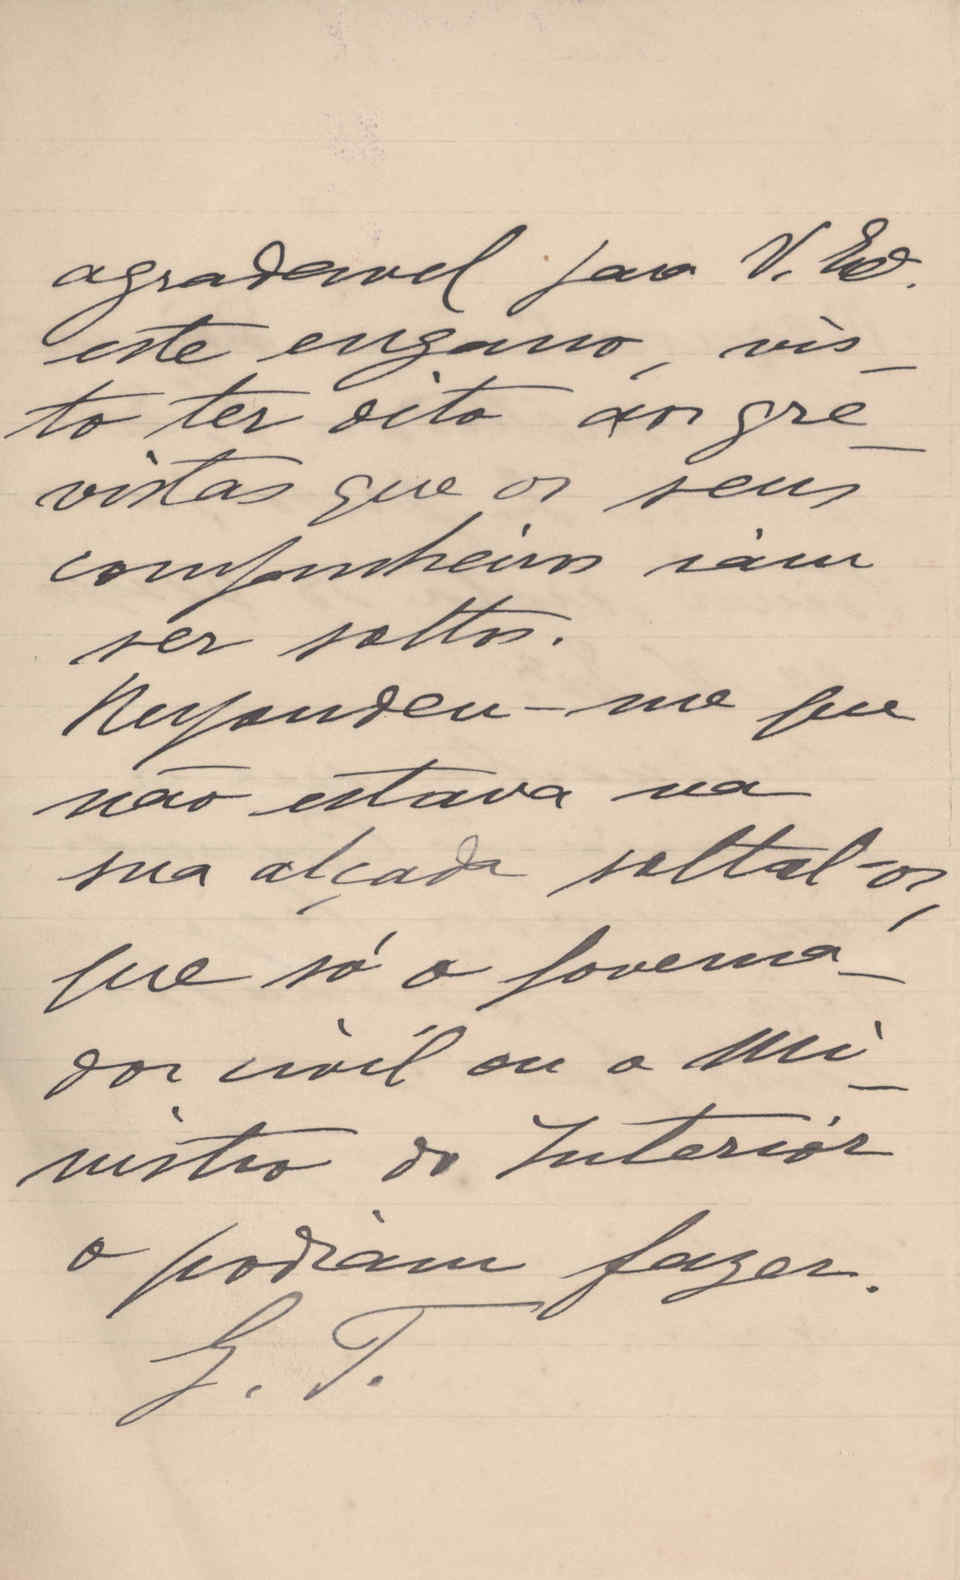 agradavel para V. Exª.
este engano, vis_
to ter dito aos gre_
vistas que os seus
companheiros iam
ser soltos.
Respondeu-me que
não estava na
sua alçada soltal-os,
que só o governa_
dor civil ou o Mi_
nistro do Interior
o podiam fazer.
G. T.